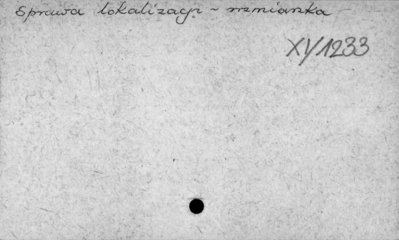 Sprawa lokalizacji - wzmianka
XV/1233